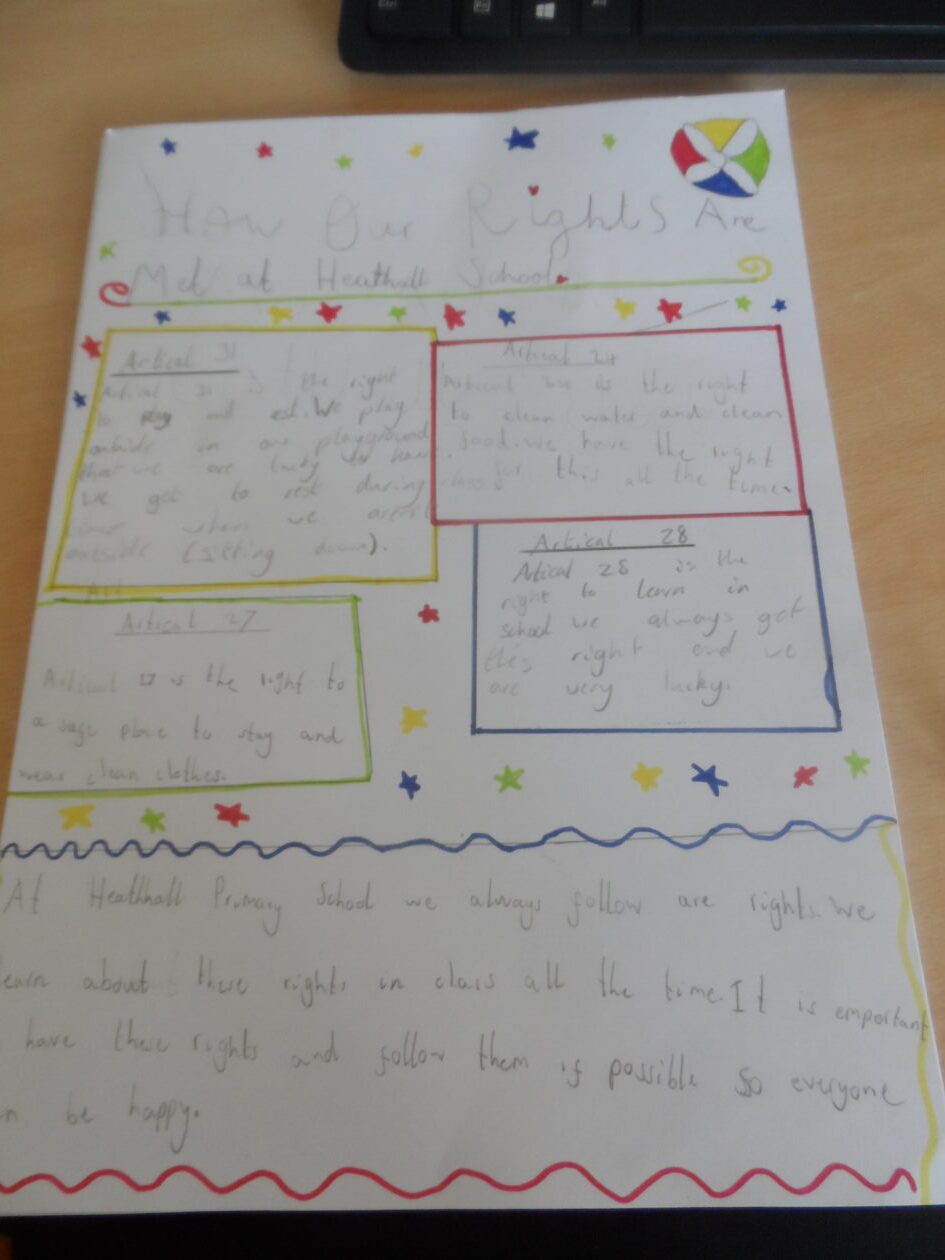 How Our Rights Are
Met at Heathhall School.
Artical 31
Artical 31 is the right
to play and rest. We play
outside in our playground
that we are lucky to have.
We get to rest during class
when we aren't
outside (sitting down).
Artical 24
Artical 24 is the right
to clean water and clean
food. we have the right
for this all the time.
Artical 28
Artical 28 is the
right to learn in
school we always get
this right and we
are very lucky.
Artical 27
Artical 27 is the right to
a safe place to stay and
wear clean clothes.
At Heathhall Primary School we always follow are rights. We
learn about these rights in class all the time. It is emportant
have these rights and follow them if possible so everyone
be happy.